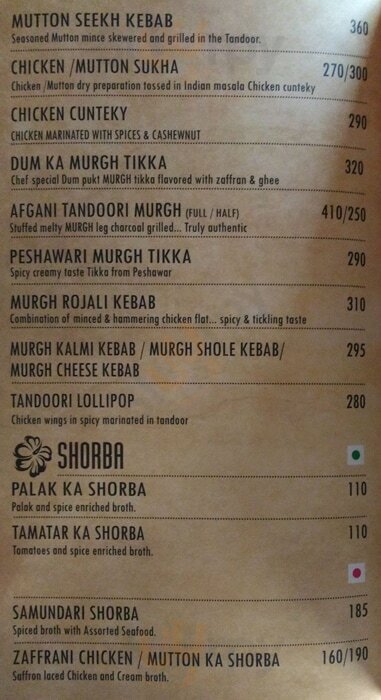 MUTTON SEEKH KEBAB 360
Seasoned Mutton mince skewered and grilled in the Tandoor.
CHICKEN /MUTTON SUKHA 270/300
Chicken /Mutton dry preparation tossed in Indian masala Chicken cunteky
CHICKEN CUNTEKY 290
CHICKEN MARINATED WITH SPICES & CASHEWNUT
DUM KA MURGH TIKKA 320
Chef special Dum pukt MURGH tikka flavored with zaffran & ghee
AFGANI TANDOORI MURGH (FULL / HALF) 410/250
Stuffed melty MURGH leg charcoal grilled... Truly authentic
PESHAWARI MURGH TIKKA 290
Spicy creamy taste Tikka from Peshawar
MURGH ROJALI KEBAB 310
Combination of minced & hammering chicken flat... spicy & tickling taste
MURGH KALMI KEBAB / MURGH SHOLE KEBAB/ 295
MURGH CHEESE KEBAB
TANDOORI LOLLIPOP 280
Chicken wings in spicy marinated in tandoor
SHORBA
PALAK KA SHORBA 110
Palak and spice enriched broth.
TAMATAR KA SHORBA 110
Tomatoes and spice enriched broth.
SAMUNDARI SHORBA 185
Spiced broth with Assorted Seafood.
ZAFFRANI CHICKEN / MUTTON KA SHORBA 160/190
Saffron laced Chicken and Cream broth.